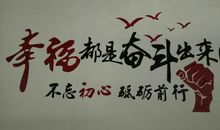 幸福都是奋斗出来
不忘初心 砥砺前行